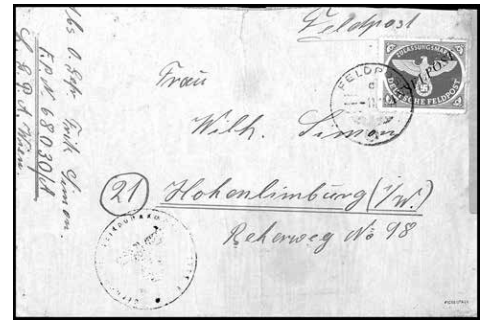 Feldpost
ZULASSUNGSMARKE
DEUTSCHE FELDPOST
INSELPOST
FELDP
Frau
Wilh. Simon
(21) Hohenlimburg (i/W.)
Reherweg No 98
Abs O. Gefr. Simon.
F.P. No 68030/A
Wien.